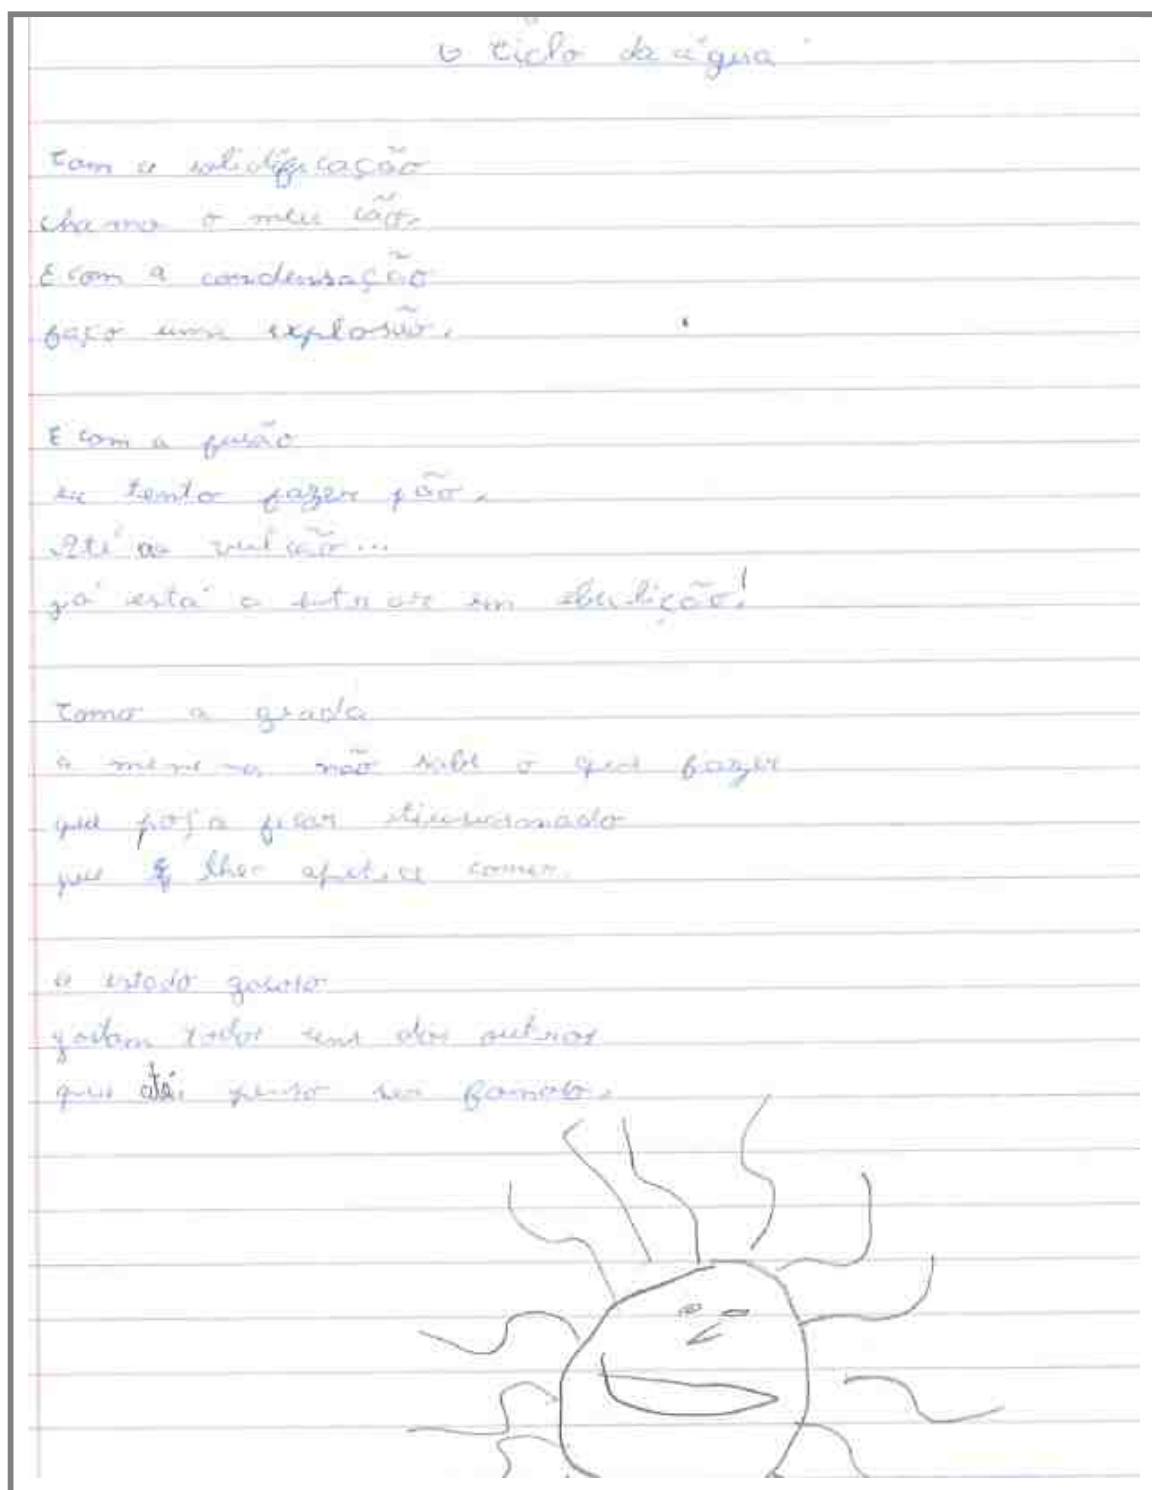 O ciclo da água
Com a solidificação
chamo o meu cão.
E com a condensação
faço uma explosão.
E com a fusão
eu tento fazer pão.
Até ao vulcão...
já está a entrar em ebulição!
Como a geada
a menina não sabe o que fazer
que poſa ficar
que lhes apetece comer.
o estado gasoso
gostam todos uns dos outros
que até penso ser famoso.